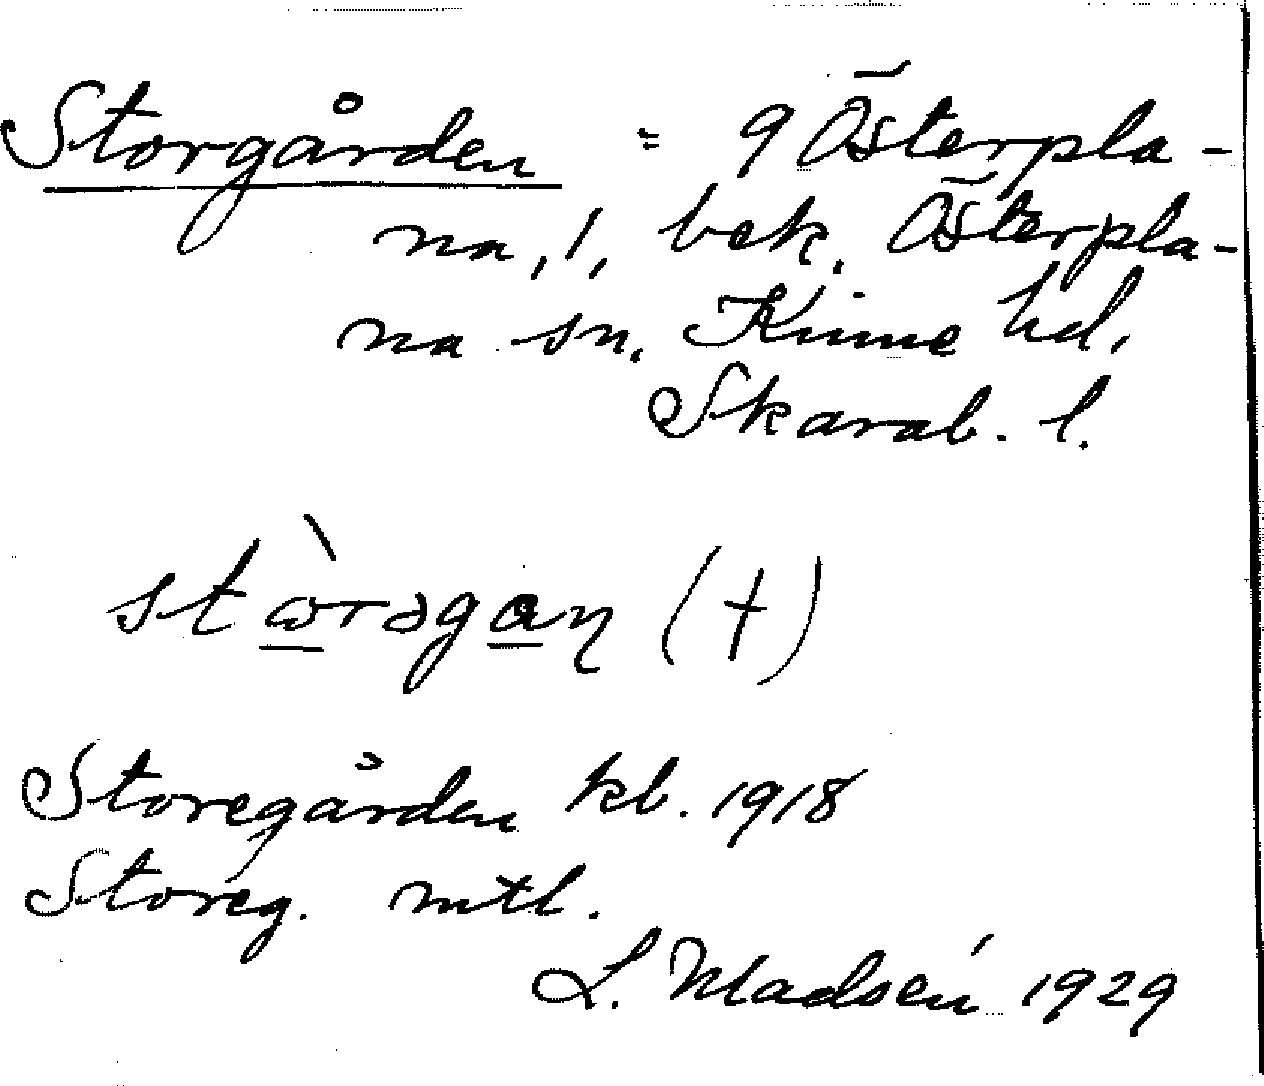 Storgården = 9 Österpla-
na, 1, bek. Österpla-
na sn. Kinne hd.
Skarab. l.
stɷ̀rəgaɳ (†)
Storegården kb. 1918
Storeg. mtl.
L. Madsén 1929